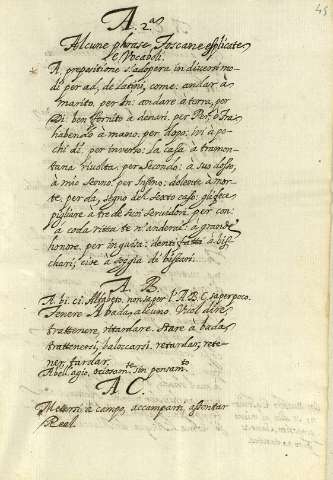 45
A. 2.a
Alcune phrase Toscane esplicate
e Vocaboli.
A, prepositione s'adopera in diversi mo-
di per ad, de latini, come, andar à
marito, per In: andare a torra, per
Di: ben fornito à denari. per Per, è tra
habenolo à mano. per dopo: ivi a po-
chi dì. per inverso: la casa à tramon-
tana rivolta. per secondo: à suo dosso,
à mio senno. per Infino: dolente à mor-
te. per da, segno del sexto caso: gli fece
pigliare à tre de suoi servidori. per con:
a coda ritta te n'anderai: à grande
honore. per in guisa: denti fatti à bis-
chari, cioè à foggia di bischari.
A. B.
A. bi. ci. Alfabeto, non saper l'A. B. C. saper poco.
Tenere à bada, alcuno, Vuol dire,
trattenere, ritardare. Stare à bada,
trattenersi, baloccarsi. retardar, rete-
ner, tardar.
A bell'agio, otiosam.te sin pensam.to
A C.
Mettersi à campo, accamparsi, assentar
Real.